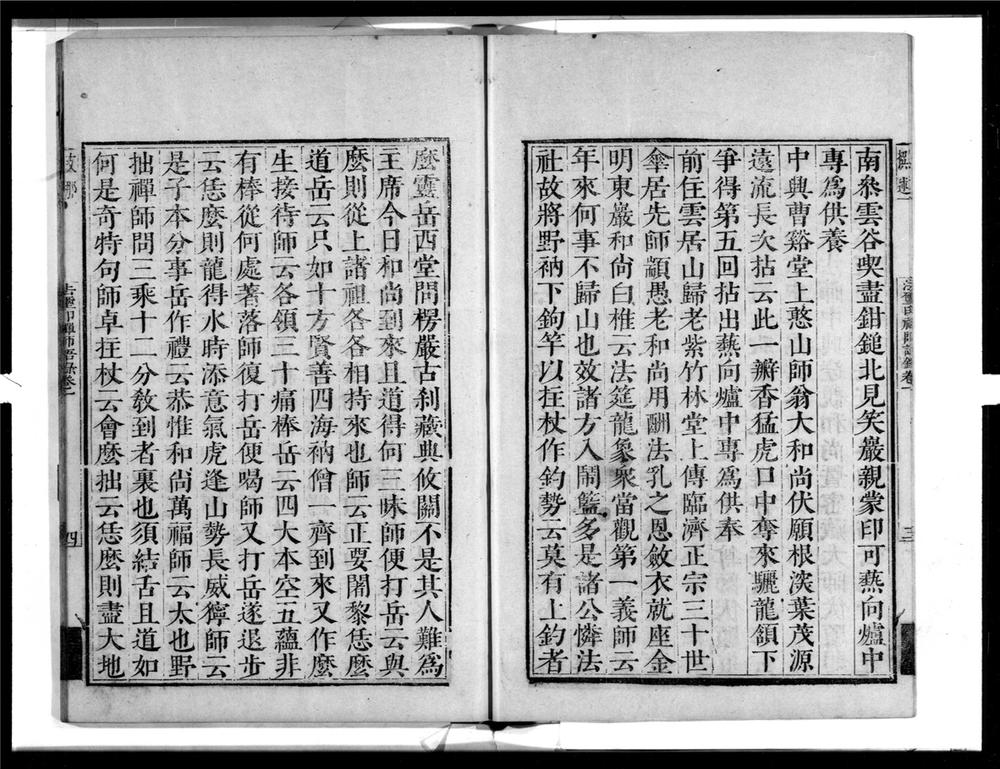 南叅雲谷喫盡鉗鎚北見笑巖親蒙印可爇向爐中
專為供養
中興曹谿堂上憨山師翁大和尚伏願根深葉茂源
遠流長次拈云此一瓣香猛虎口中奪來驪龍頷下
爭得第五回拈出爇向爐中專為供奉
前住雲居山歸老紫竹林堂上傳臨濟正宗三十世
傘居先師顓愚老和尚用酬法孔之恩斂衣就座金
明東巖和尚白椎云法筵龍象衆當觀第一義師云
年來何事不歸山也效諸方入鬧籃多是諸公憐法
社故將野衲下鉤竿以拄杖作釣勢云莫有上釣者
麼靈岳西堂問楞嚴古刹藏典攸關不是其人難為
主席今日和尚到來且道得何三昧師便打岳云與
麼則從上諸祖各各相持來也師云正要闍黎恁麼
道岳云只如十方賢善四海衲僧一齊到來又作麼
生接待師云各領三十痛棒岳云四大本空五蘊非
有棒從何處著落師復打岳便喝師又打岳遂退步
云恁麼則龍得水時添意氣虎逢山勢長威獰師云
是子本分事岳作禮云恭惟和尚萬福師云太也野
拙禪師問二乘十二分敎到者裏也須結舌且道如
何是奇特句師卓拄杖云會麼拙云恁麼則盡大地
四